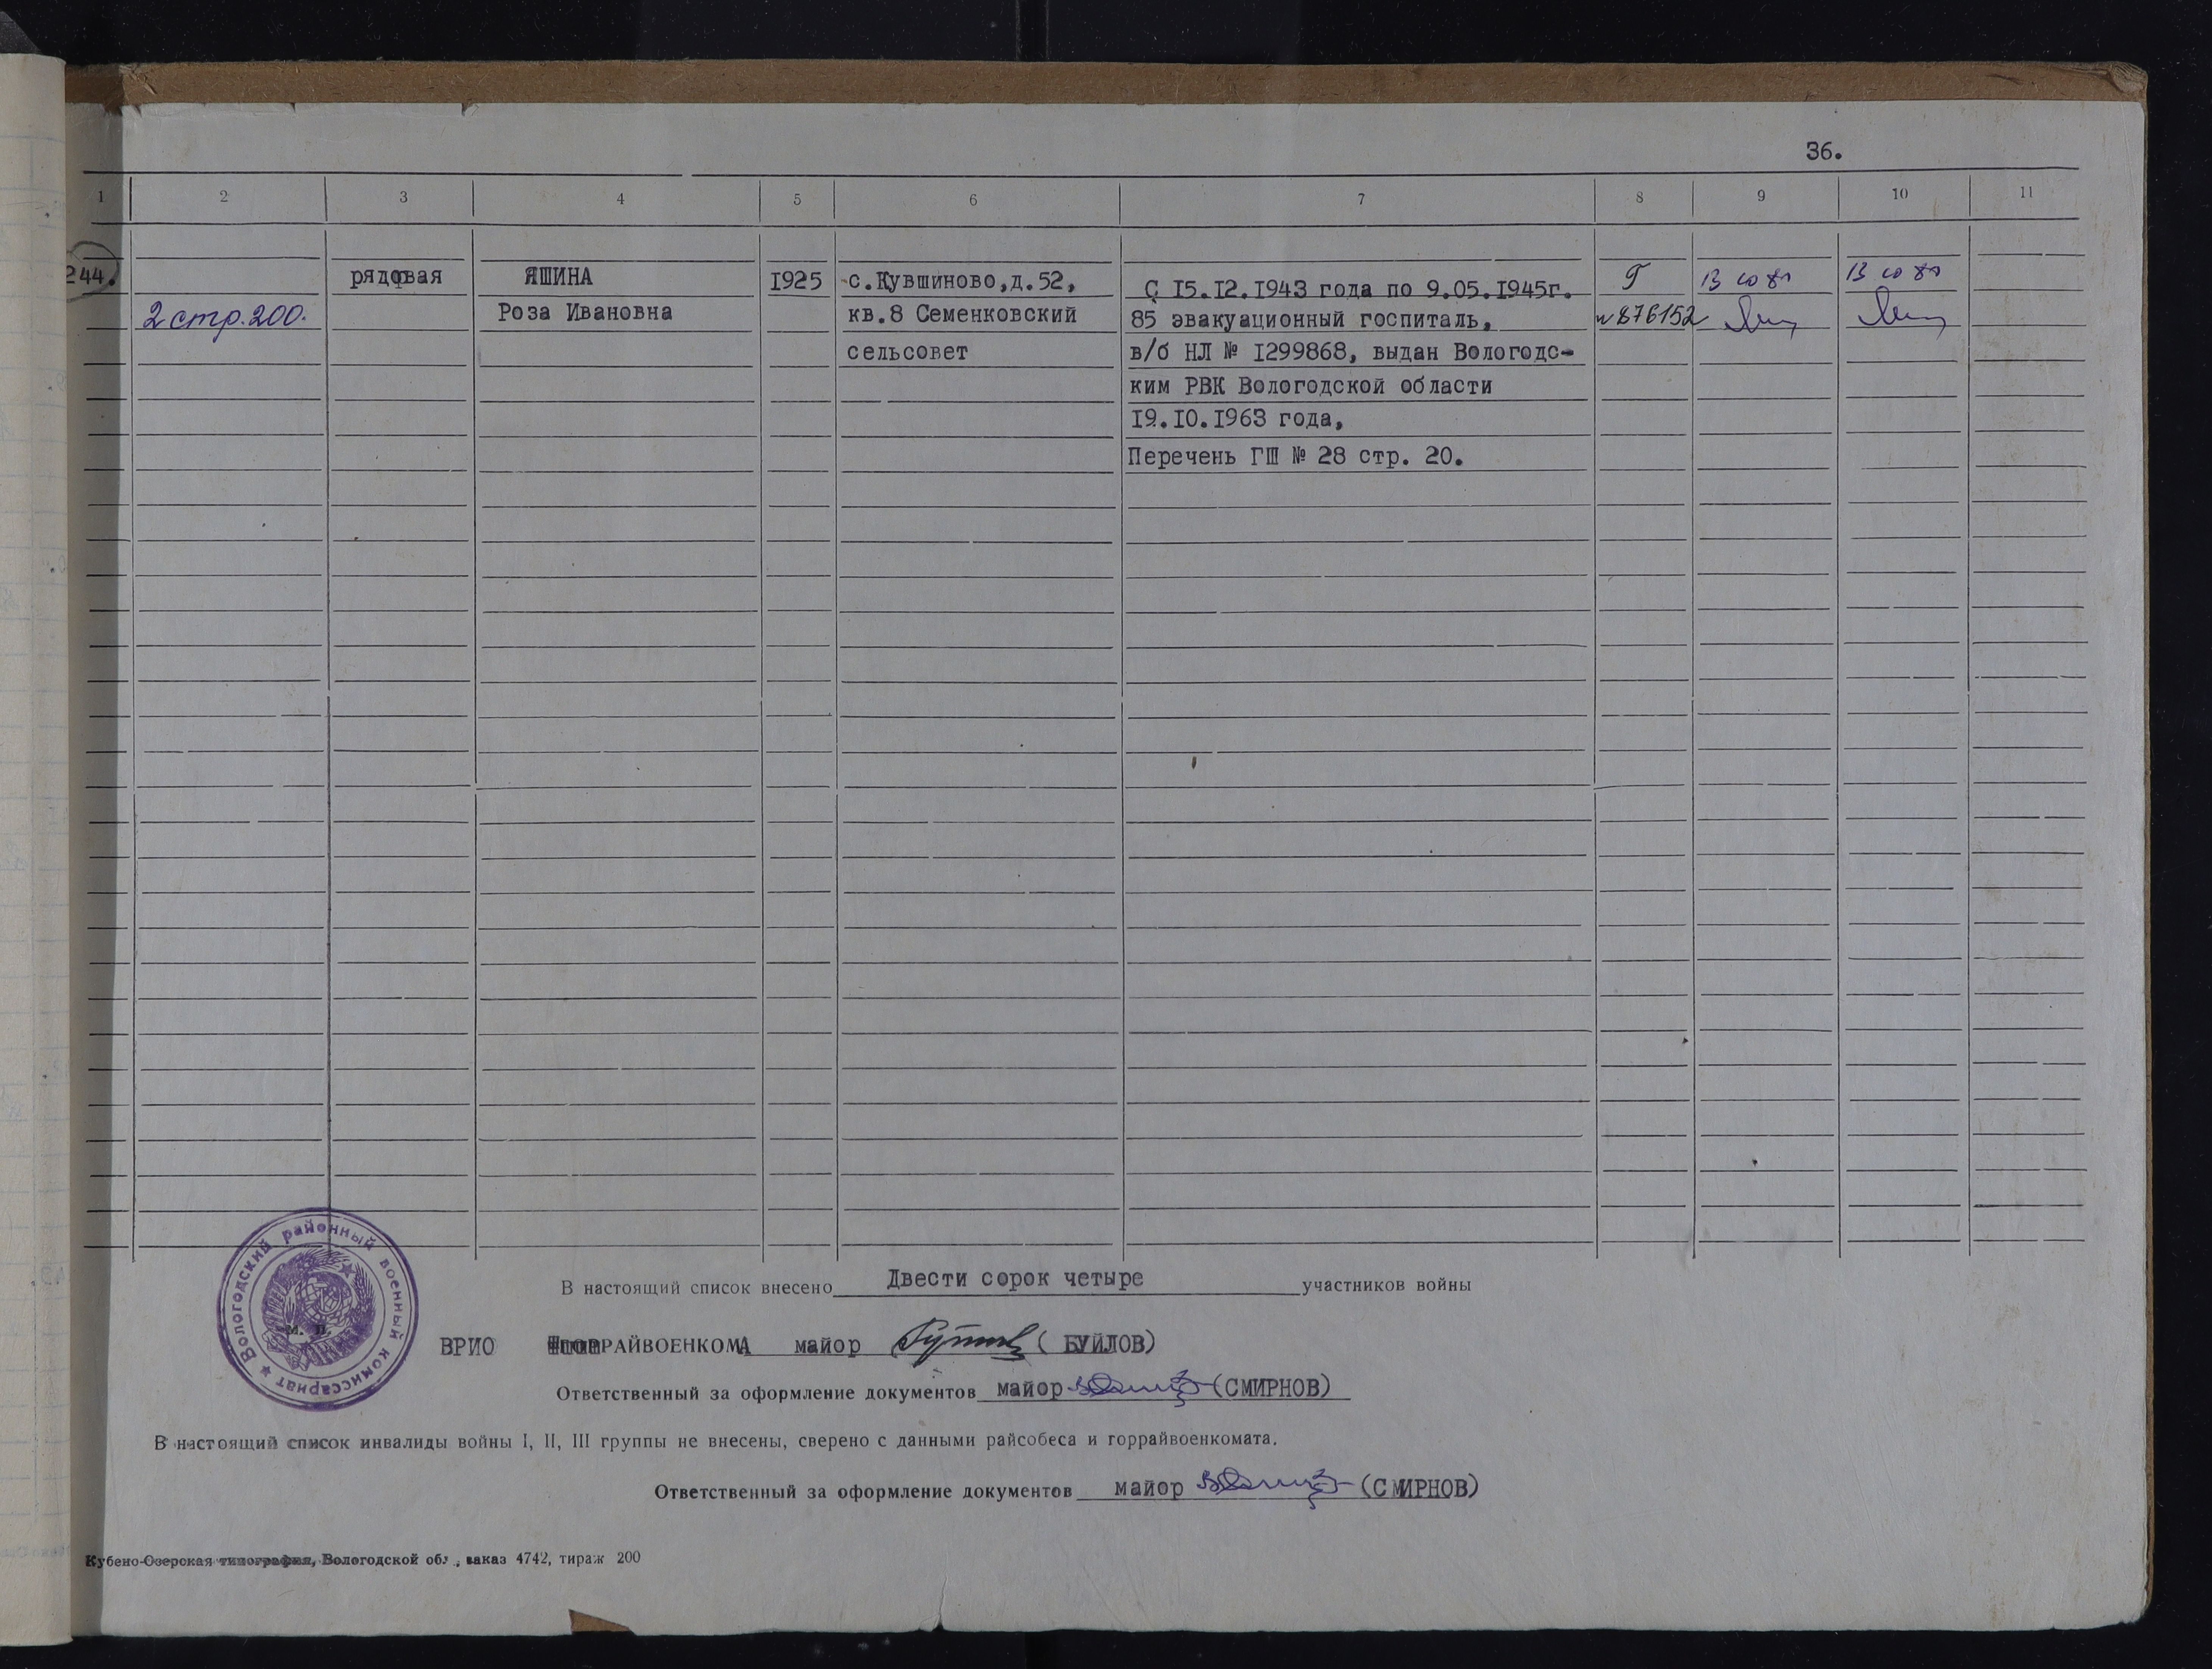 36.
1 2 3 4 5 6 7 8 9 10 11
244. рядовая ЯШИНА 1925 с.Кувшиново,д.52, С 15.12.1943 года по 9.05.1945г. Г
2 стр.200. Роза Ивановна кв.8 Семенковский 85 эвакуационный госпиталь, № 876152
сельсовет в/б НЛ № 1299868, выдан Вологодс-
ким РВК Вологодской области
19.10.1963 года,
Перечень ГШ № 28 стр. 20.
Вологодский районный военный комиссариат
М. П.
В настоящий список внесено Двести сорок четыре участников войны
ВРИО РАЙВОЕНКОМА майор (БУЙЛОВ)
Ответственный за оформление документов майор (СМИРНОВ)
В настоящий список инвалиды войны I, II, III группы не внесены, сверено с данными райсобеса и горрайвоенкомата.
Ответственный за оформление документов майор (СМИРНОВ)
Кубено-Озерская типография, Вологодской обл., заказ 4742, тираж 200